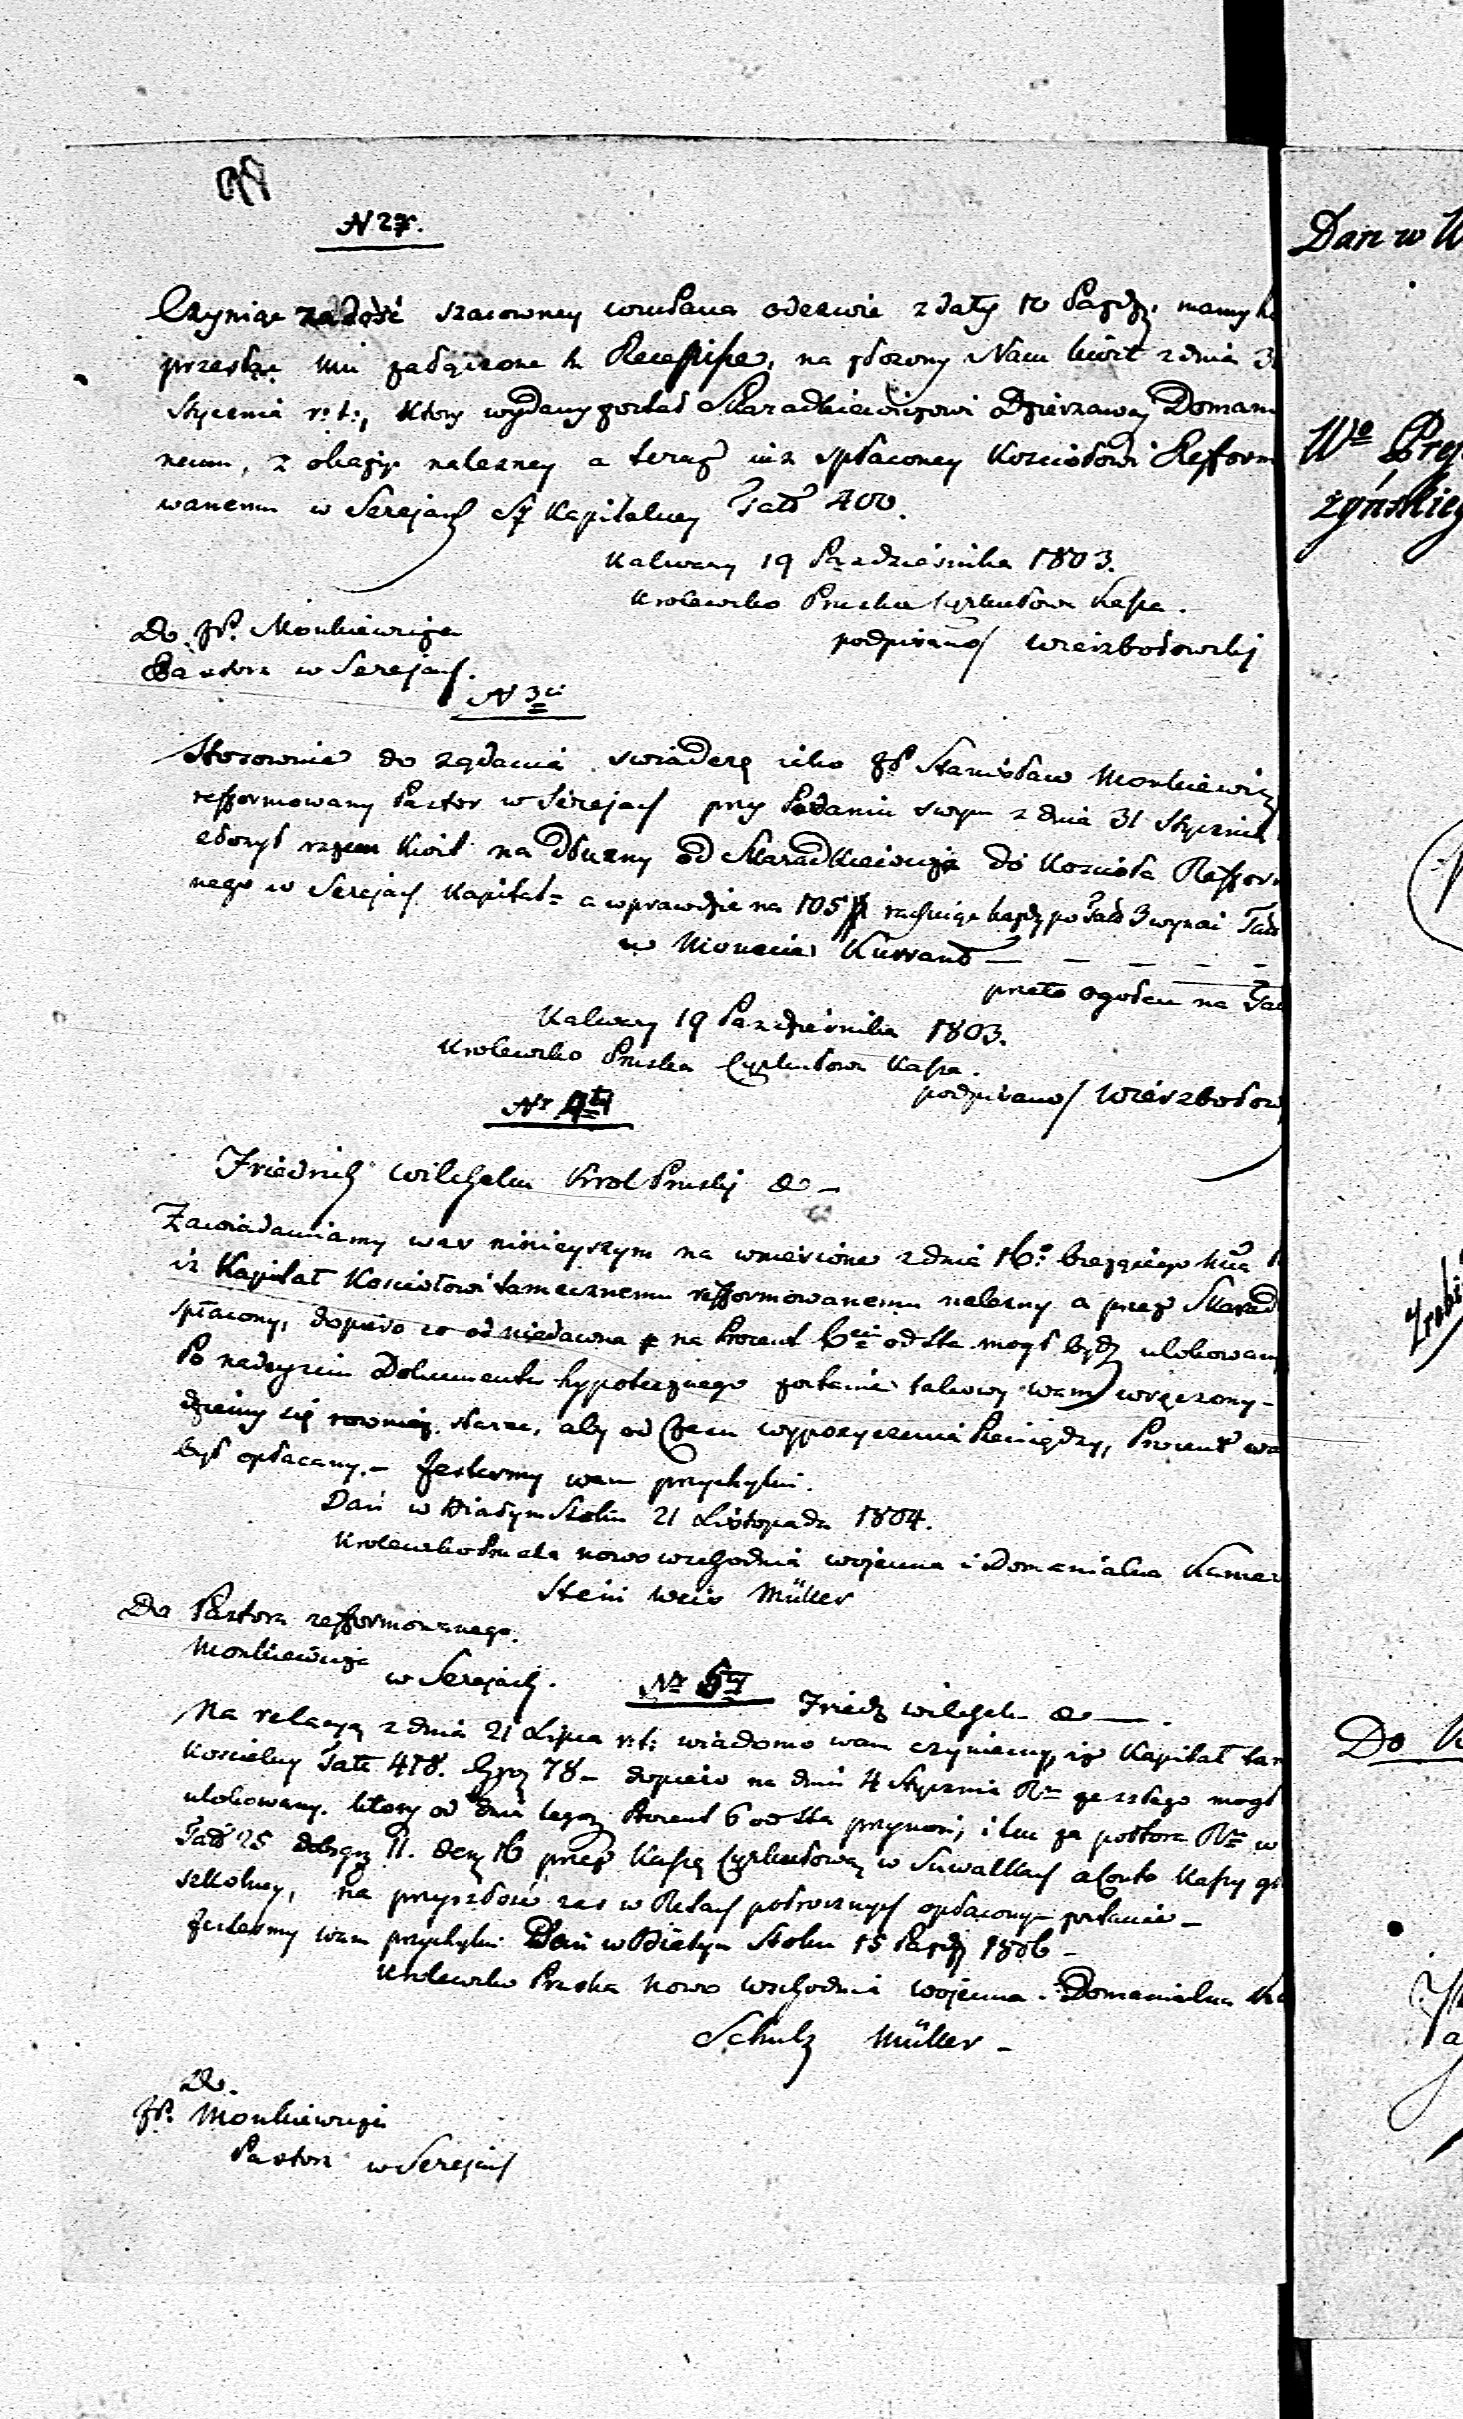 N 27.
Czyniąc zadość szacowney odezwie z daty 10 Paźdz. mamy
przesłać mu załączone Recepisse, na złożony Nam kwit z dnia 3
Stycznia r: t:, ktory wydany został Skaradkiewiczowi Dzierzawcy Doman
nemu, z okazyi nalezney a teraz iuz spłaconey Kosciołowi Refform
wanemu w Serejach Kapitalney Talr 400.
Kalwary 19 Pazdziernika 1803.
Krolewsko Pruska Cyrkułowa Kassa.
podpisano/ Wierzbołowskij
Do JP. Monkiewicza
Pastora w Serejach.
N 3ci
Stosownie do ządania swiadczę iako JP Stanisław Monkiewicz
refformowany Pastor w Serejach przy Podaniu swym z dnia 31 Stycznia
złozył kwit na dłuzny od Skaradkiewicza do Koscioła Refform
nego w Serejach Kapitał a wprawdzie na 105 rachuiąc po Talr 3 wynosi Talr
w Monecie Kurrant — — — — —
przeto ogołem na Tal
Kalwary 19 Pazdziernika 1803.
Krolewsko Pruska Cyrkułowa Kassa.
podpisano/ Wierzbołow
Nr 4ty
Friedrich Wilchelm Krol Pruskij &—
Zawiadamiamy was ninieyszym na wniesione z dnia 16° biezącego Mca
iz Kapitał Kosciołowi tamecznemu refformowanemu nalezny a przez Skarad
spłacony, dopiero co od niedawna na Procent 6ci od sta mogł bydź ulokowany
Po nadeyściu Dokumentu hypotecznego zostanie takowy wam wręczony—
dziemy się rownież starac, aby od Czasu wypozyczenia Pieniędzy, Procent wa
był opłacany.— Jestesmy wam przychylni.
Dań w Białym Stoku 21 Listopada 1804.
Krolewsko Pruska nowo wschodnia wojenna i Domanialna Kamer
Stein Weis Müller
Do Pastora refformowanego.
Monkiewicza
w Serejach.
Nr 5ty Friedr Wilchelm &—.
Na relacyą z dnia 21 Lipca r: t: wiadomo wam czyniemy, iz Kapitał tam
Koscielny Talr 478. Grzy 78— dopiero na dniu 4 Stycznia Ru zeszłego mogł
ulokowany. ktory od dnia tego Procent 6 od sta przynosi, i ten za połtora Ru w
Talr 25 dobrgrz 11. deny 16 przez Kassę Cyrkułową w Suwałkach a Conto Kassy
szkolney, na przyszłosc zas w Ratach połrocznych opłacony zostanie—
Jestesmy wam przychylni Dań w Białym Stoku 15 Paźdz 1806—
Krolewsko Pruska nowo Wschodnia wojenna Domanialna Ka
Schulz Müller—
Do.
JP. Monkiewicza
Pastora w Serejach
Dan w W
Wo Prez
żyńskieg
Do K